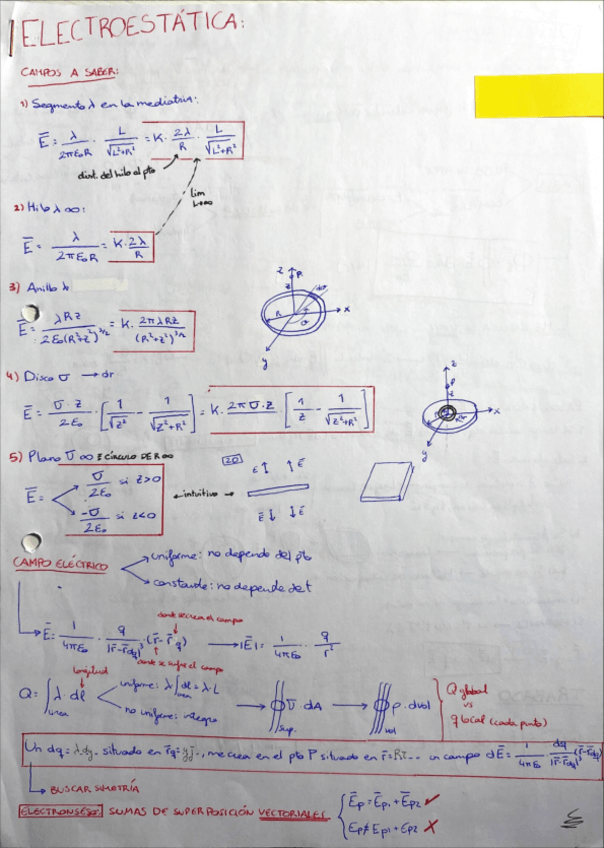 ELECTROESTÁTICA:
CAMPOS A SABER:
1) Segmento λ en la mediatriz:
E̅ = λ/(2πε₀R) · L/√(L²+R²) = K · 2λ/R · L/√(L²+R²)
dist. del hilo al pto
lim L→∞
2) Hilo λ ∞:
E̅ = λ/(2πε₀R) = K · 2λ/R
3) Anillo λ
E̅ = λRz/(2ε₀(R²+z²)^3/2) = K · 2πλRz/(R²+z²)^3/2
z P z R x y
4) Disco σ → dr
E̅ = σ·z/(2ε₀) · [1/√z² - 1/√(z²+R²)] = K · 2πσ·z · [1/z - 1/√(z²+R²)]
z P x y
5) Plano σ ∞ ≡ CÍRCULO DE R ∞
E̅ = σ/2ε₀ si z>0
-σ/2ε₀ si z<0
intuitivo
2D
E̅ ↑ ↑ E̅
E̅ ↓ ↓ E̅
CAMPO ELÉCTRICO
uniforme: no depende del pto
constante: no depende de t
donde se crea el campo
E̅ = 1/(4πε₀) · q/|r̅-r̅dq|³ · (r̅-r̅q) → |E̅| = 1/(4πε₀) · q/r²
donde se sufre el campo
longitud
Q = ∫linea λ·dl
uniforme: λ∫linea dl = λ·L
no uniforme: integro
→ ∫∫sup. σ·dA → ∫∫∫vol ρ·dvol
Q global
vs
q local (cada punto)
Un dq = λdy.. situado en r̅q = yj.., me crea en el pto P situado en r̅ = Ri.. un campo dE̅ = 1/(4πε₀) dq/|r̅-r̅dq|³ (r̅-r̅dq)
BUSCAR SIMETRÍA
ELECTRONSEJO: SUMAS DE SUPERPOSICIÓN VECTORIALES
E̅p = E̅p1 + E̅p2 ✓
Ep ≠ Ep1 + Ep2 X